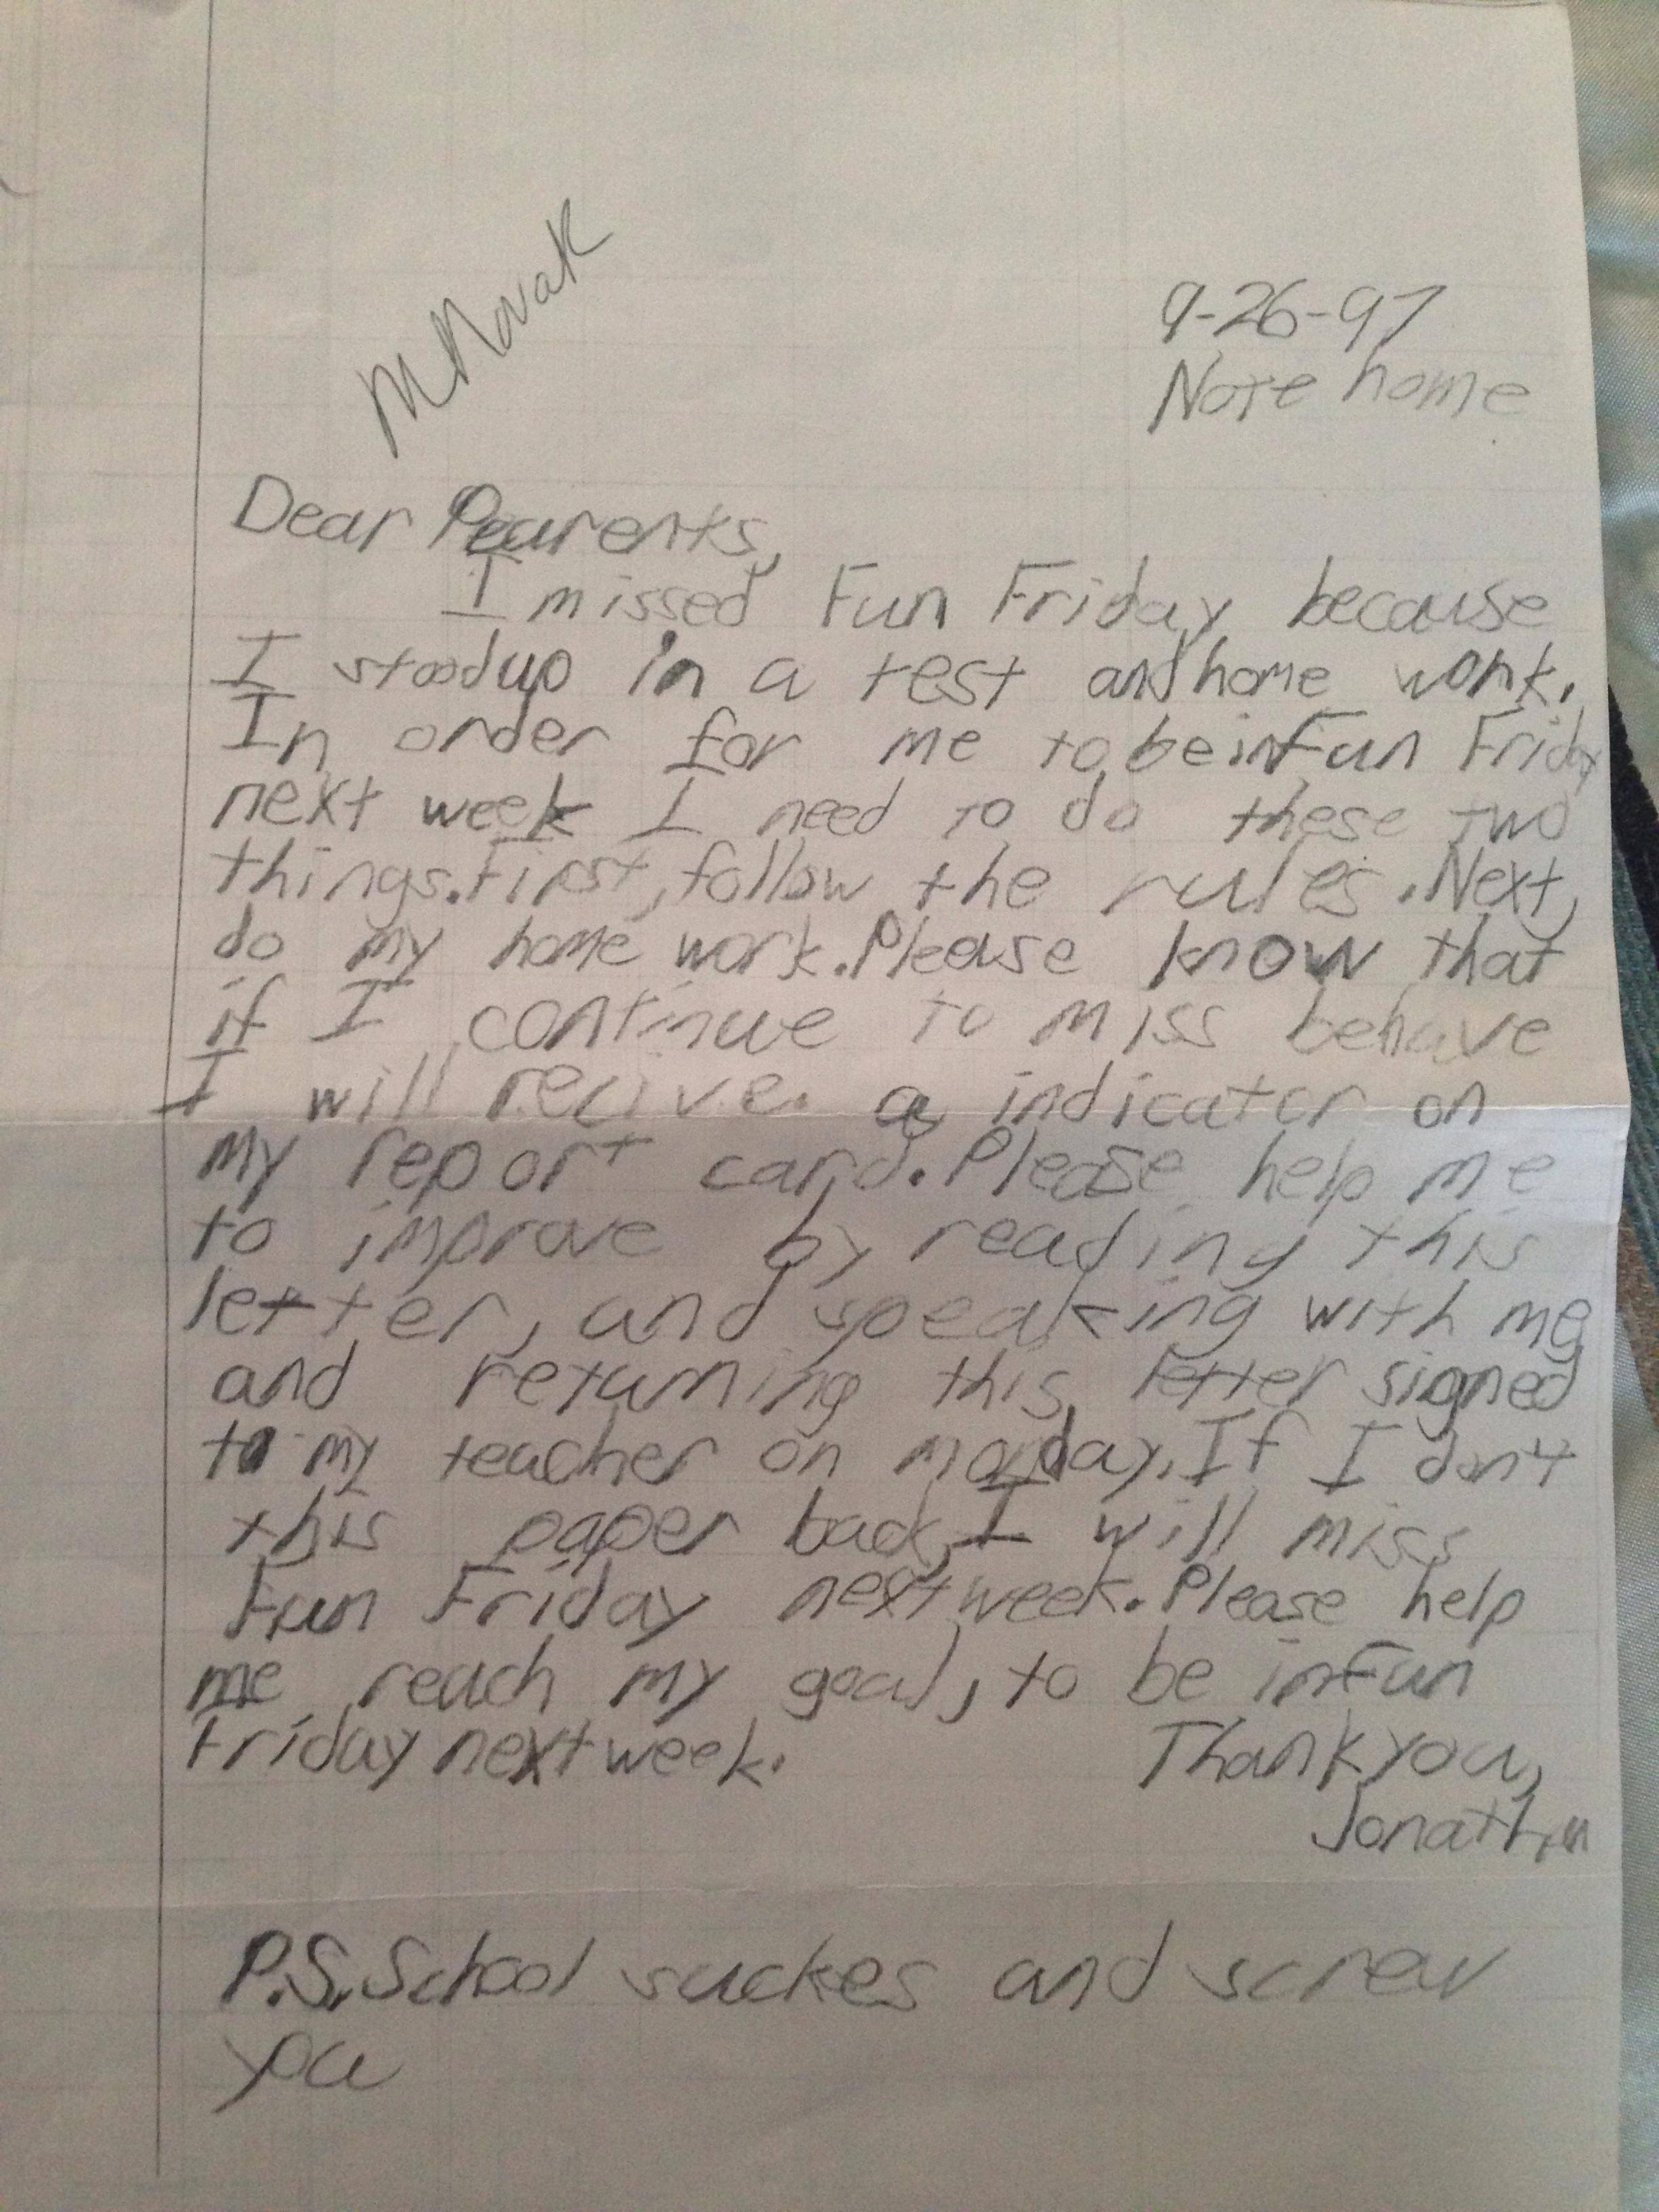 M Novak
9-26-97
Note home
Dear Pearents,
I missed Fun Friday because
I stood up in a test and home work.
In order for me to be in Fun Friday
next week I need to do these two
things. First, follow the rules. Next,
do my home work. Please know that
if I continue to miss behave
I will recive. a indicator on
my report card. Please help me
to improve by reading this
letter, and speaking with me
and returning this letter signed
to my teacher on monday. If I don't
this paper back, I will miss
Fun Friday next week. Please help
me reach my goal, to be in Fun
Friday next week.
Thank you,
Jonathan
P.S. School suckes and screw
you